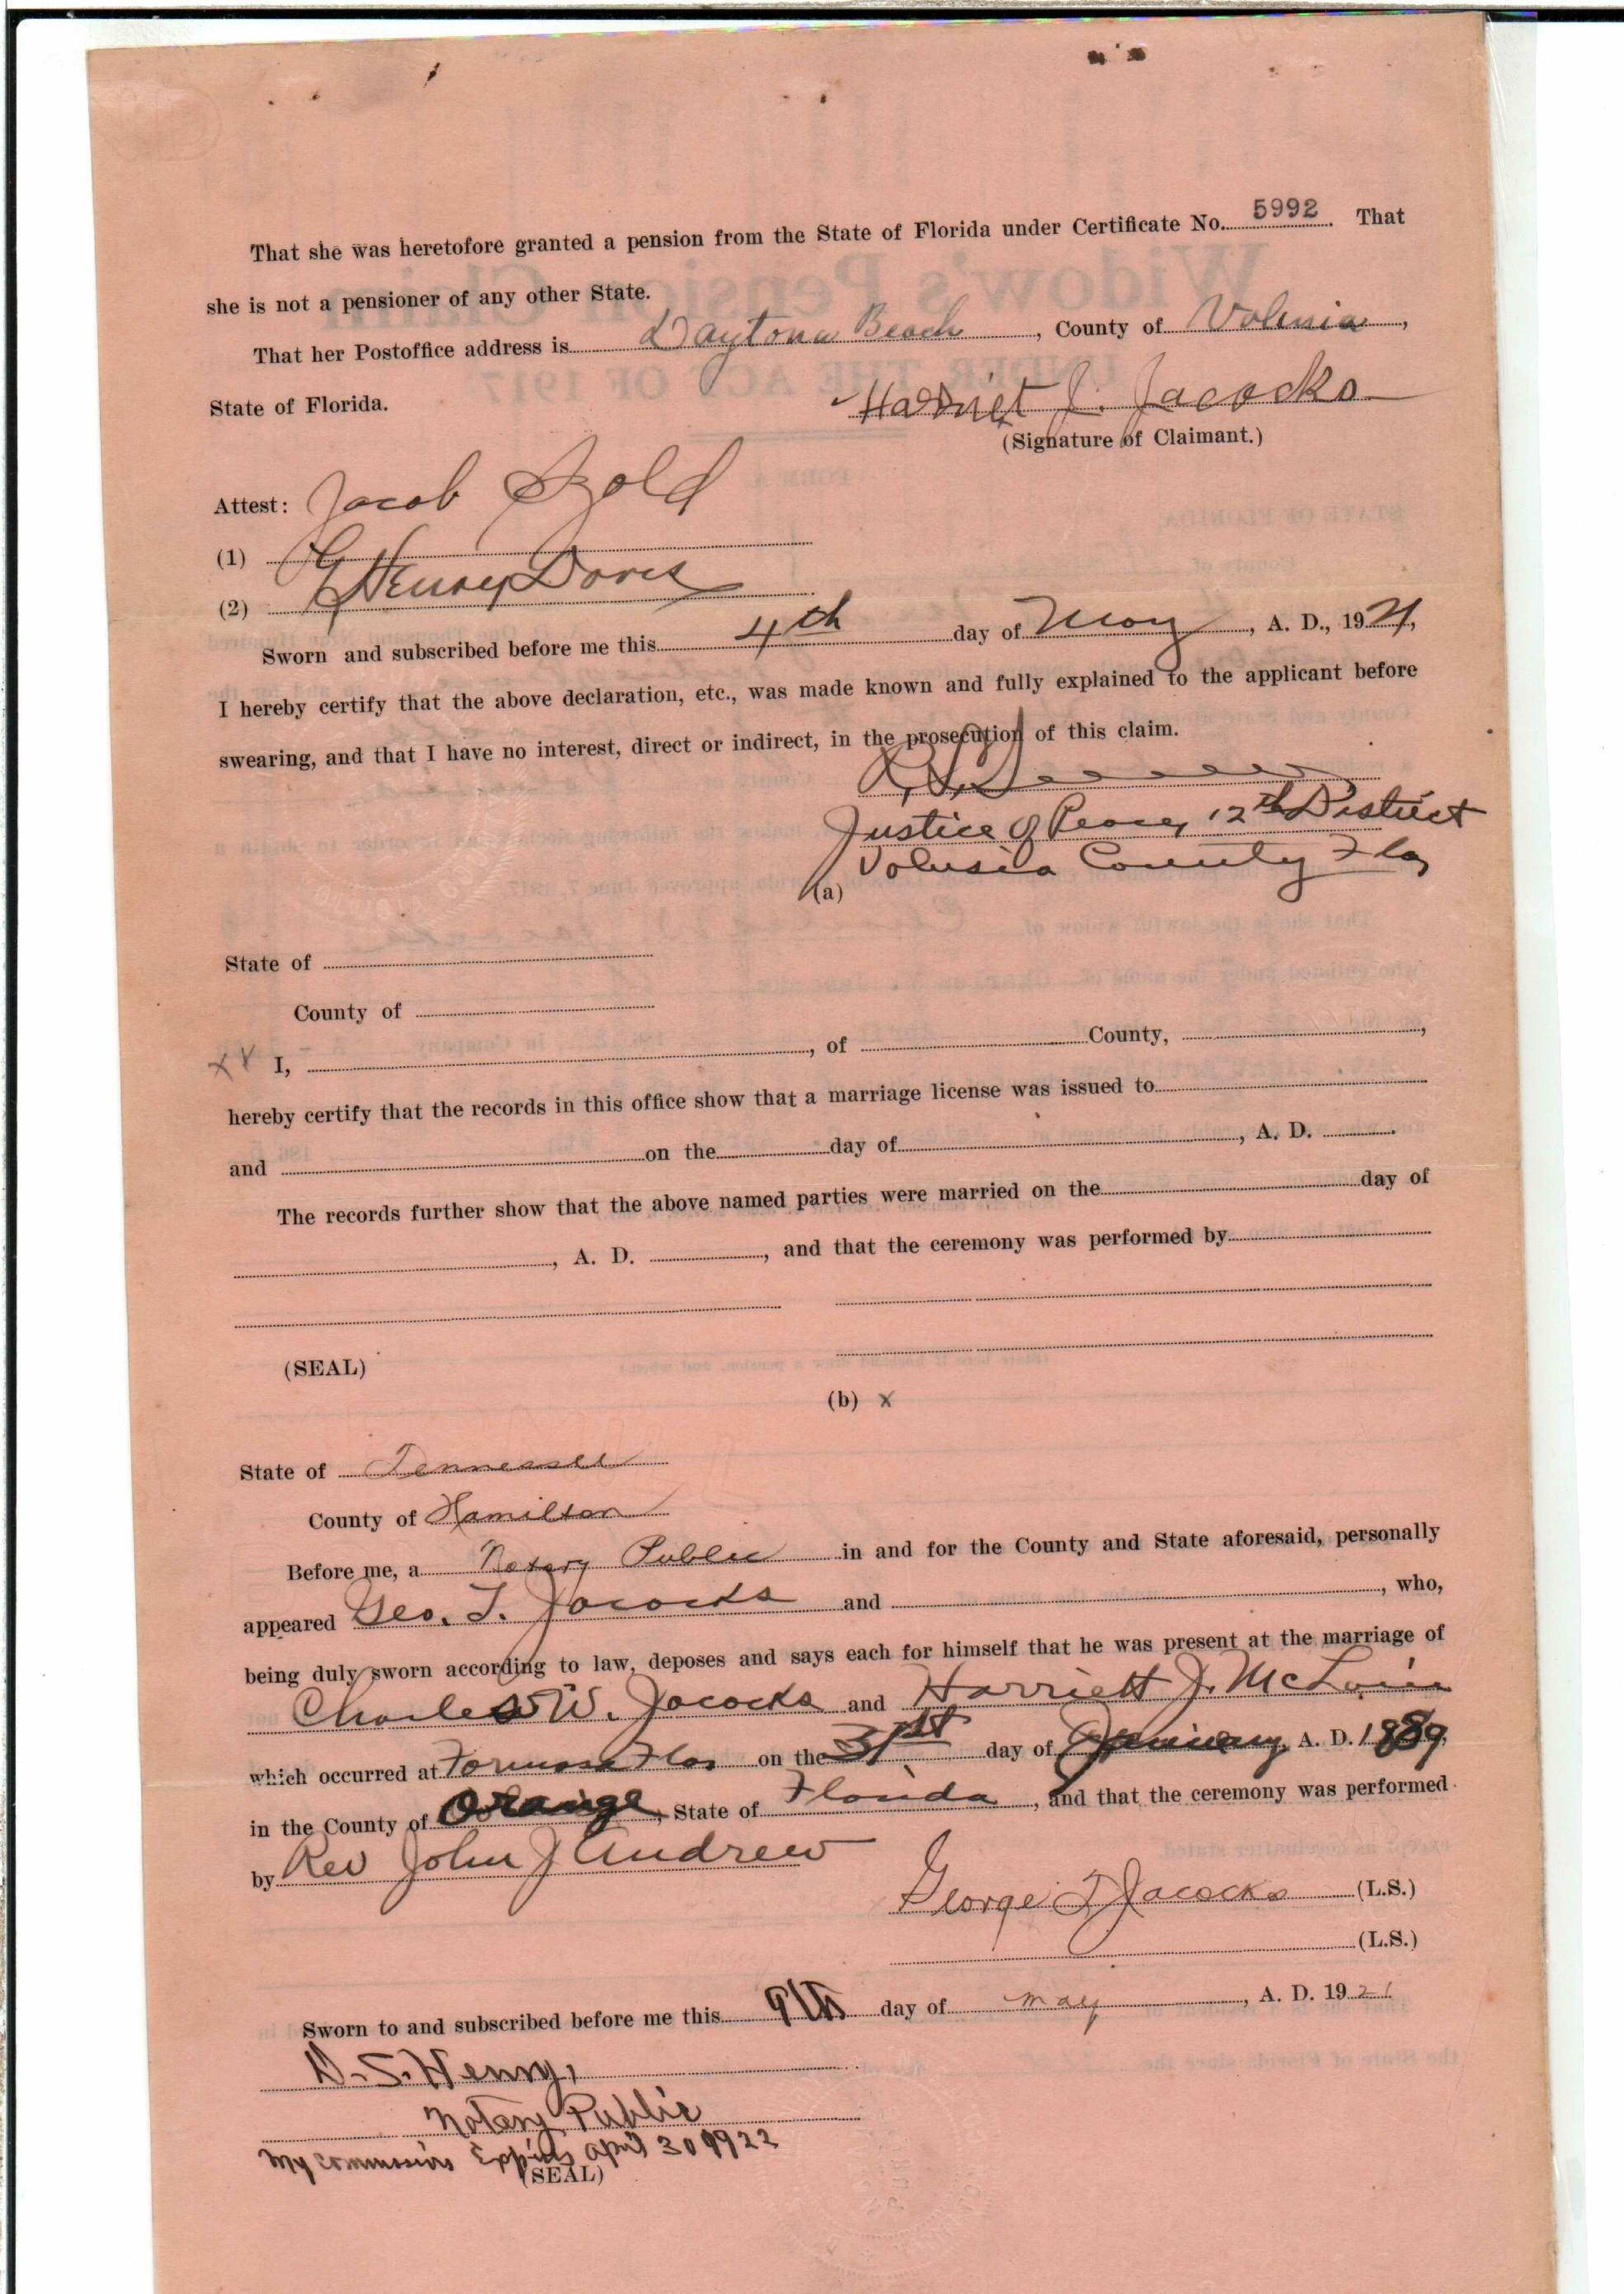 That she was heretofore granted a pension from the State of Florida under Certificate No. 5992. That
she is not a pensioner of any other State.
That her Postoffice address is Daytona Beach, County of Volusia,
State of Florida.
Harriet J. Jacocks
(Signature of Claimant.)
Attest: Jacob
(1)
(2) Henry Davis
Sworn and subscribed before me this 4th day of May, A. D., 1921,
I hereby certify that the above declaration, etc., was made known and fully explained to the applicant before
swearing, and that I have no interest, direct or indirect, in the prosecution of this claim.
Justice of Peace, 12th District
Volusia County Fla
(a)
State of
County of
I, , of County, ,
hereby certify that the records in this office show that a marriage license was issued to
and on the day of , A. D.
The records further show that the above named parties were married on the day of
, A. D. , and that the ceremony was performed by
(SEAL)
(b) x
State of Tennessee
County of Hamilton
Before me, a Notary Public in and for the County and State aforesaid, personally
appeared Geo. T. Jacocks and , who,
being duly sworn according to law, deposes and says each for himself that he was present at the marriage of
Charles W. Jacocks and Harriett J.
which occurred at Formosa Fla on the 31st day of January, A. D. 1889,
in the County of Orange, State of Florida, and that the ceremony was performed
by Rev John J Andrew
George T Jacocks (L.S.)
(L.S.)
Sworn to and subscribed before me this 9th day of May, A. D. 1921
D. S. Henry,
Notary Public
My commission Expires April 30 1922
(SEAL)